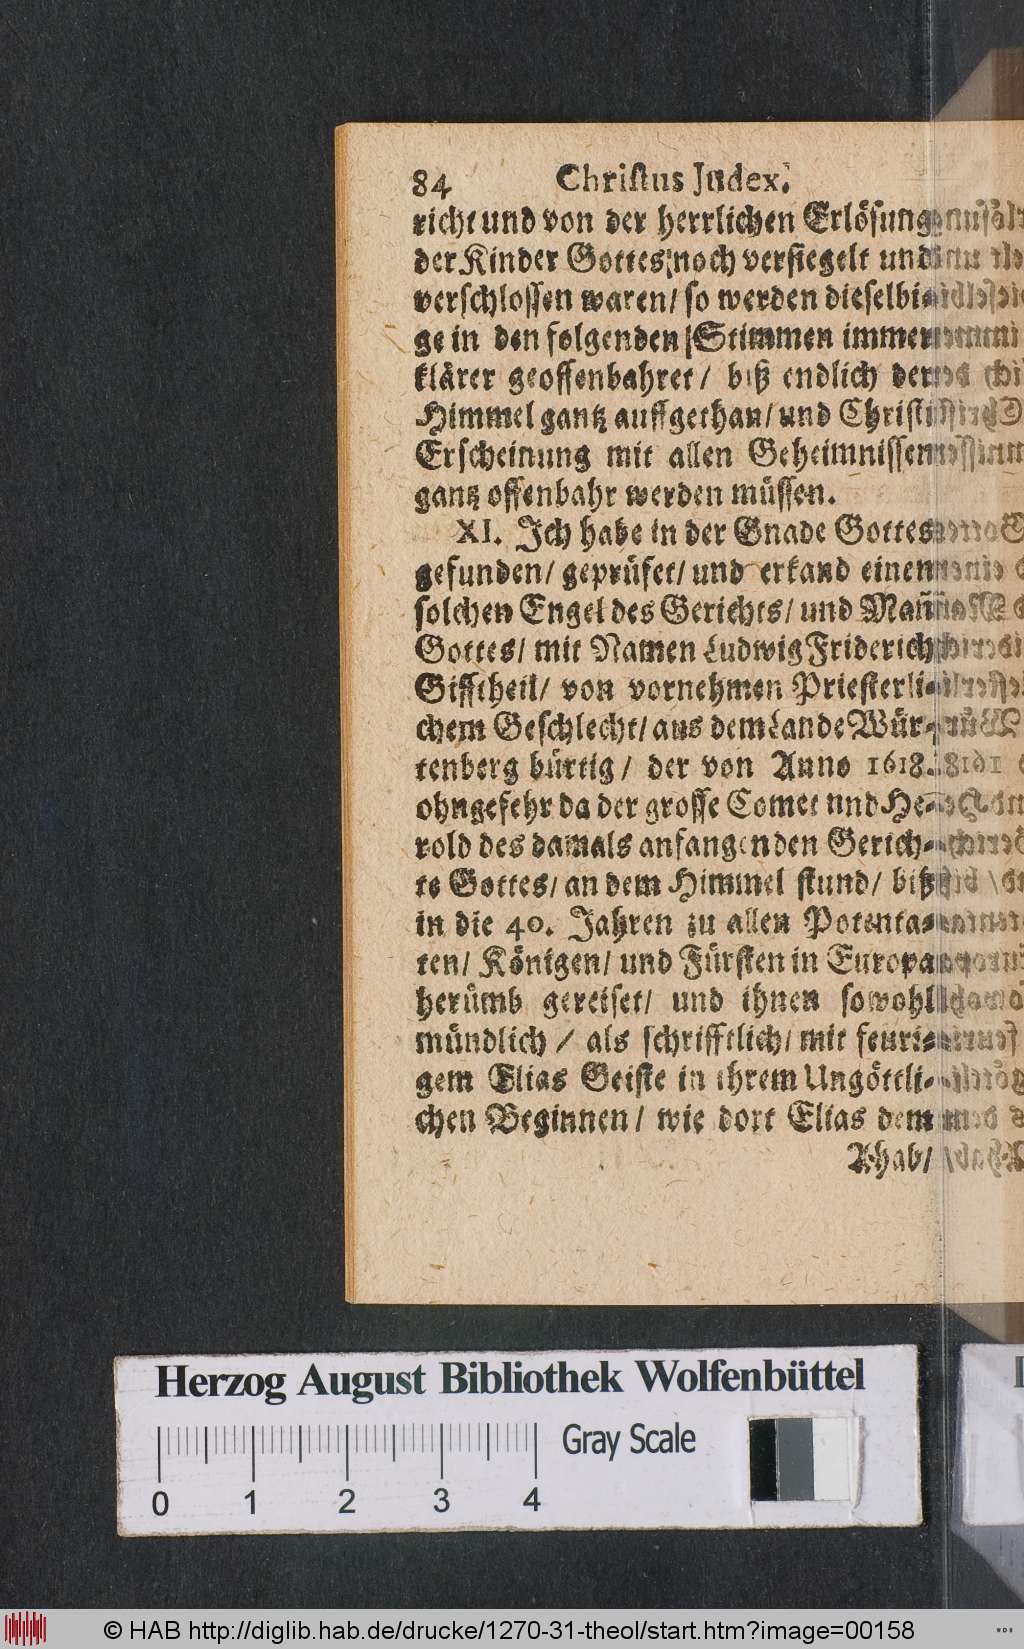 84 Christus Judex.
richt und von der herrlichen Erlösung
der Kinder Gottes noch versiegelt und
verschlossen waren/ so werden dieselbi-
ge in den folgenden Stimmen immer
klärer geoffenbahret/ biß endlich der
Himmel gantz auffgethan/ und Christi
Erscheinung mit allen Geheimnissen
gantz offenbahr werden müssen.
XI. Ich habe in der Gnade Gottes
gefunden/ geprüfet/ und erkand einen
solchen Engel des Gerichts/ und Mañ
Gottes/ mit Namen Ludwig Friderich
Gifftheil/ von vornehmen Priesterli-
chem Geschlecht/ aus dem Lande Wür-
tenberg bürtig/ der von Anno 1618.
ohngefehr da der grosse Comet und He-
rold des damals anfangenden Gerich-
te Gottes/ an dem Himmel stund/ biß
in die 40. Jahren zu allen Potenta-
ten/ Königen/ und Fürsten in Europa
herümb gereiset/ und ihnen sowohl
mündlich / als schrifftlich/ mit feuri-
gem Elias Geiste in ihrem Ungöttli-
chen Beginnen/ wie dort Elias dem
Ahab/
Herzog August Bibliothek Wolfenbüttel
Gray Scale
0 1 2 3 4
© HAB http://diglib.hab.de/drucke/1270-31-theol/start.htm?image=00158